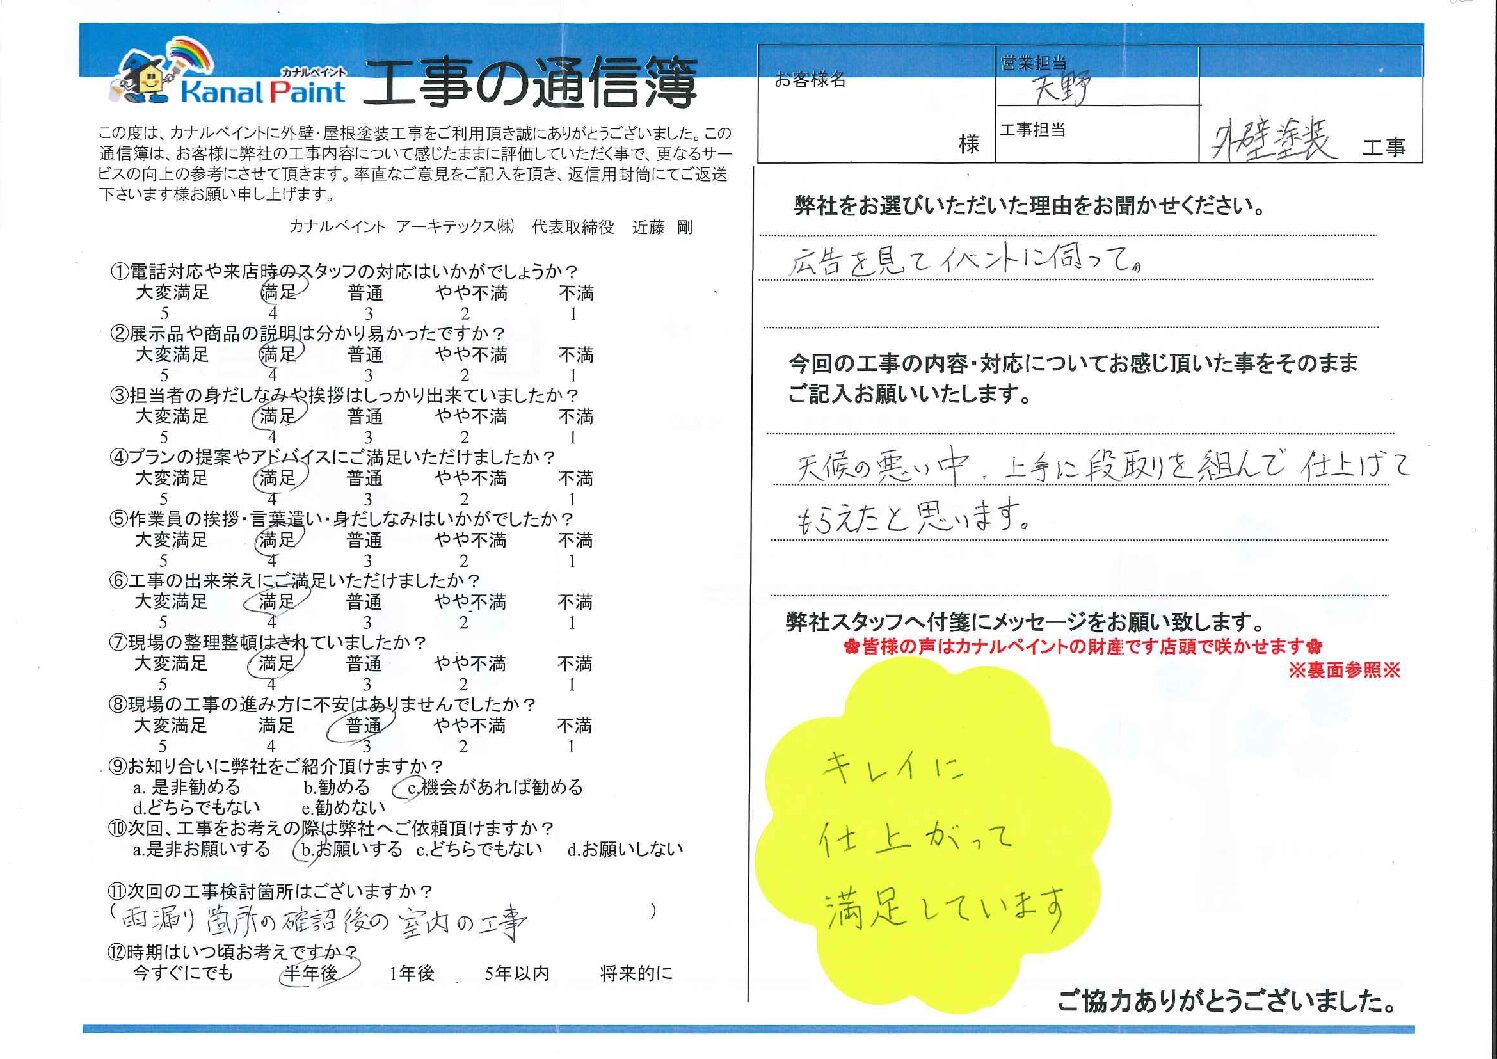 カナルペイント
Kanal Paint
工事の通信簿
お客様名
様
営業担当
天野
工事担当
外壁塗装 工事
この度は、カナルペイントに外壁・屋根塗装工事をご利用頂き誠にありがとうございました。この
通信簿は、お客様に弊社の工事内容について感じたままに評価していただく事で、更なるサー
ビスの向上の参考にさせて頂きます。率直なご意見をご記入を頂き、返信用封筒にてご返送
下さいます様お願い申し上げます。
カナルペイント アーキテックス㈱ 代表取締役 近藤 剛
①電話対応や来店時のスタッフの対応はいかがでしょうか？
大変満足 満足 普通 やや不満 不満
5 4 3 2 1
②展示品や商品の説明は分かり易かったですか？
大変満足 満足 普通 やや不満 不満
5 4 3 2 1
③担当者の身だしなみや挨拶はしっかり出来ていましたか？
大変満足 満足 普通 やや不満 不満
5 4 3 2 1
④プランの提案やアドバイスにご満足いただけましたか？
大変満足 満足 普通 やや不満 不満
5 4 3 2 1
⑤作業員の挨拶・言葉遣い・身だしなみはいかがでしたか？
大変満足 満足 普通 やや不満 不満
5 4 3 2 1
⑥工事の出来栄えにご満足いただけましたか？
大変満足 満足 普通 やや不満 不満
5 4 3 2 1
⑦現場の整理整頓はされていましたか？
大変満足 満足 普通 やや不満 不満
5 4 3 2 1
⑧現場の工事の進み方に不安はありませんでしたか？
大変満足 満足 普通 やや不満 不満
5 4 3 2 1
⑨お知り合いに弊社をご紹介頂けますか？
a. 是非勧める b.勧める c.機会があれば勧める
d.どちらでもない e.勧めない
⑩次回、工事をお考えの際は弊社へご依頼頂けますか？
a.是非お願いする b.お願いする c.どちらでもない d.お願いしない
⑪次回の工事検討箇所はございますか？
(雨漏り箇所の確認後の室内の工事 )
⑫時期はいつ頃お考えですか？
今すぐにでも 半年後 1年後 5年以内 将来的に
弊社をお選びいただいた理由をお聞かせください。
広告を見てイベントに伺って。
今回の工事の内容・対応についてお感じ頂いた事をそのまま
ご記入お願いいたします。
天候の悪い中、上手に段取りを組んで仕上げて
もらえたと思います。
弊社スタッフへ付箋にメッセージをお願い致します。
✿皆様の声はカナルペイントの財産です店頭で咲かせます✿
※裏面参照※
キレイに
仕上がって
満足しています
ご協力ありがとうございました。